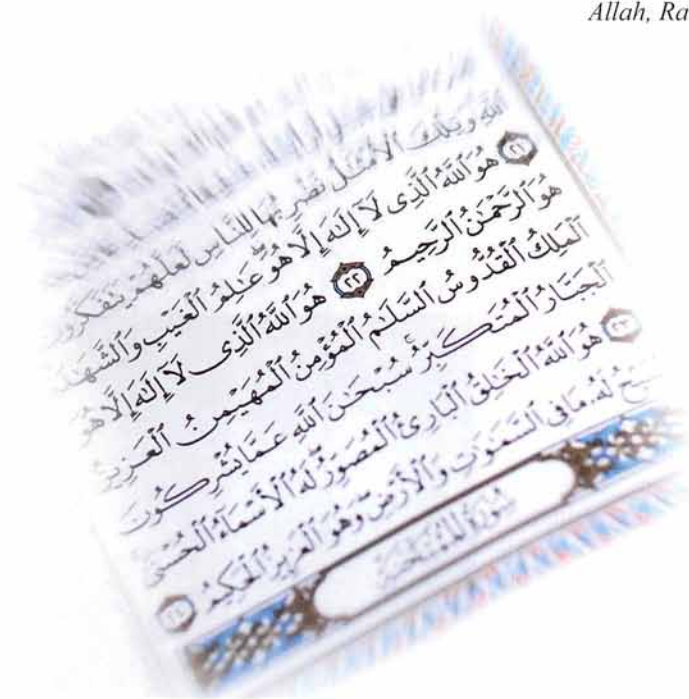 Allah, Ra
ٱللَّهِ وَتِلْكَ ٱلْأَمْثَٰلُ نَضْرِبُهَا لِلنَّاسِ لَعَلَّهُمْ يَتَفَكَّرُونَ ٢١
هُوَ ٱللَّهُ ٱلَّذِى لَآ إِلَٰهَ إِلَّا هُوَ عَٰلِمُ ٱلْغَيْبِ وَٱلشَّهَٰدَ
هُوَ ٱلرَّحْمَٰنُ ٱلرَّحِيمُ ٢٢ هُوَ ٱللَّهُ ٱلَّذِى لَآ إِلَٰهَ إِلَّا هُوَ
ٱلْمَلِكُ ٱلْقُدُّوسُ ٱلسَّلَٰمُ ٱلْمُؤْمِنُ ٱلْمُهَيْمِنُ ٱلْعَزِيزُ
ٱلْجَبَّارُ ٱلْمُتَكَبِّرُ سُبْحَٰنَ ٱللَّهِ عَمَّا يُشْرِكُونَ ٢٣
هُوَ ٱللَّهُ ٱلْخَٰلِقُ ٱلْبَارِئُ ٱلْمُصَوِّرُ لَهُ ٱلْأَسْمَآءُ ٱلْحُسْنَىٰ
سَبِّحُ لَهُۥ مَا فِى ٱلسَّمَٰوَٰتِ وَٱلْأَرْضِ وَهُوَ ٱلْعَزِيزُ ٱلْحَكِيمُ ٢٤
سُورَةُ ٱلْمُمْتَحَنَةِ